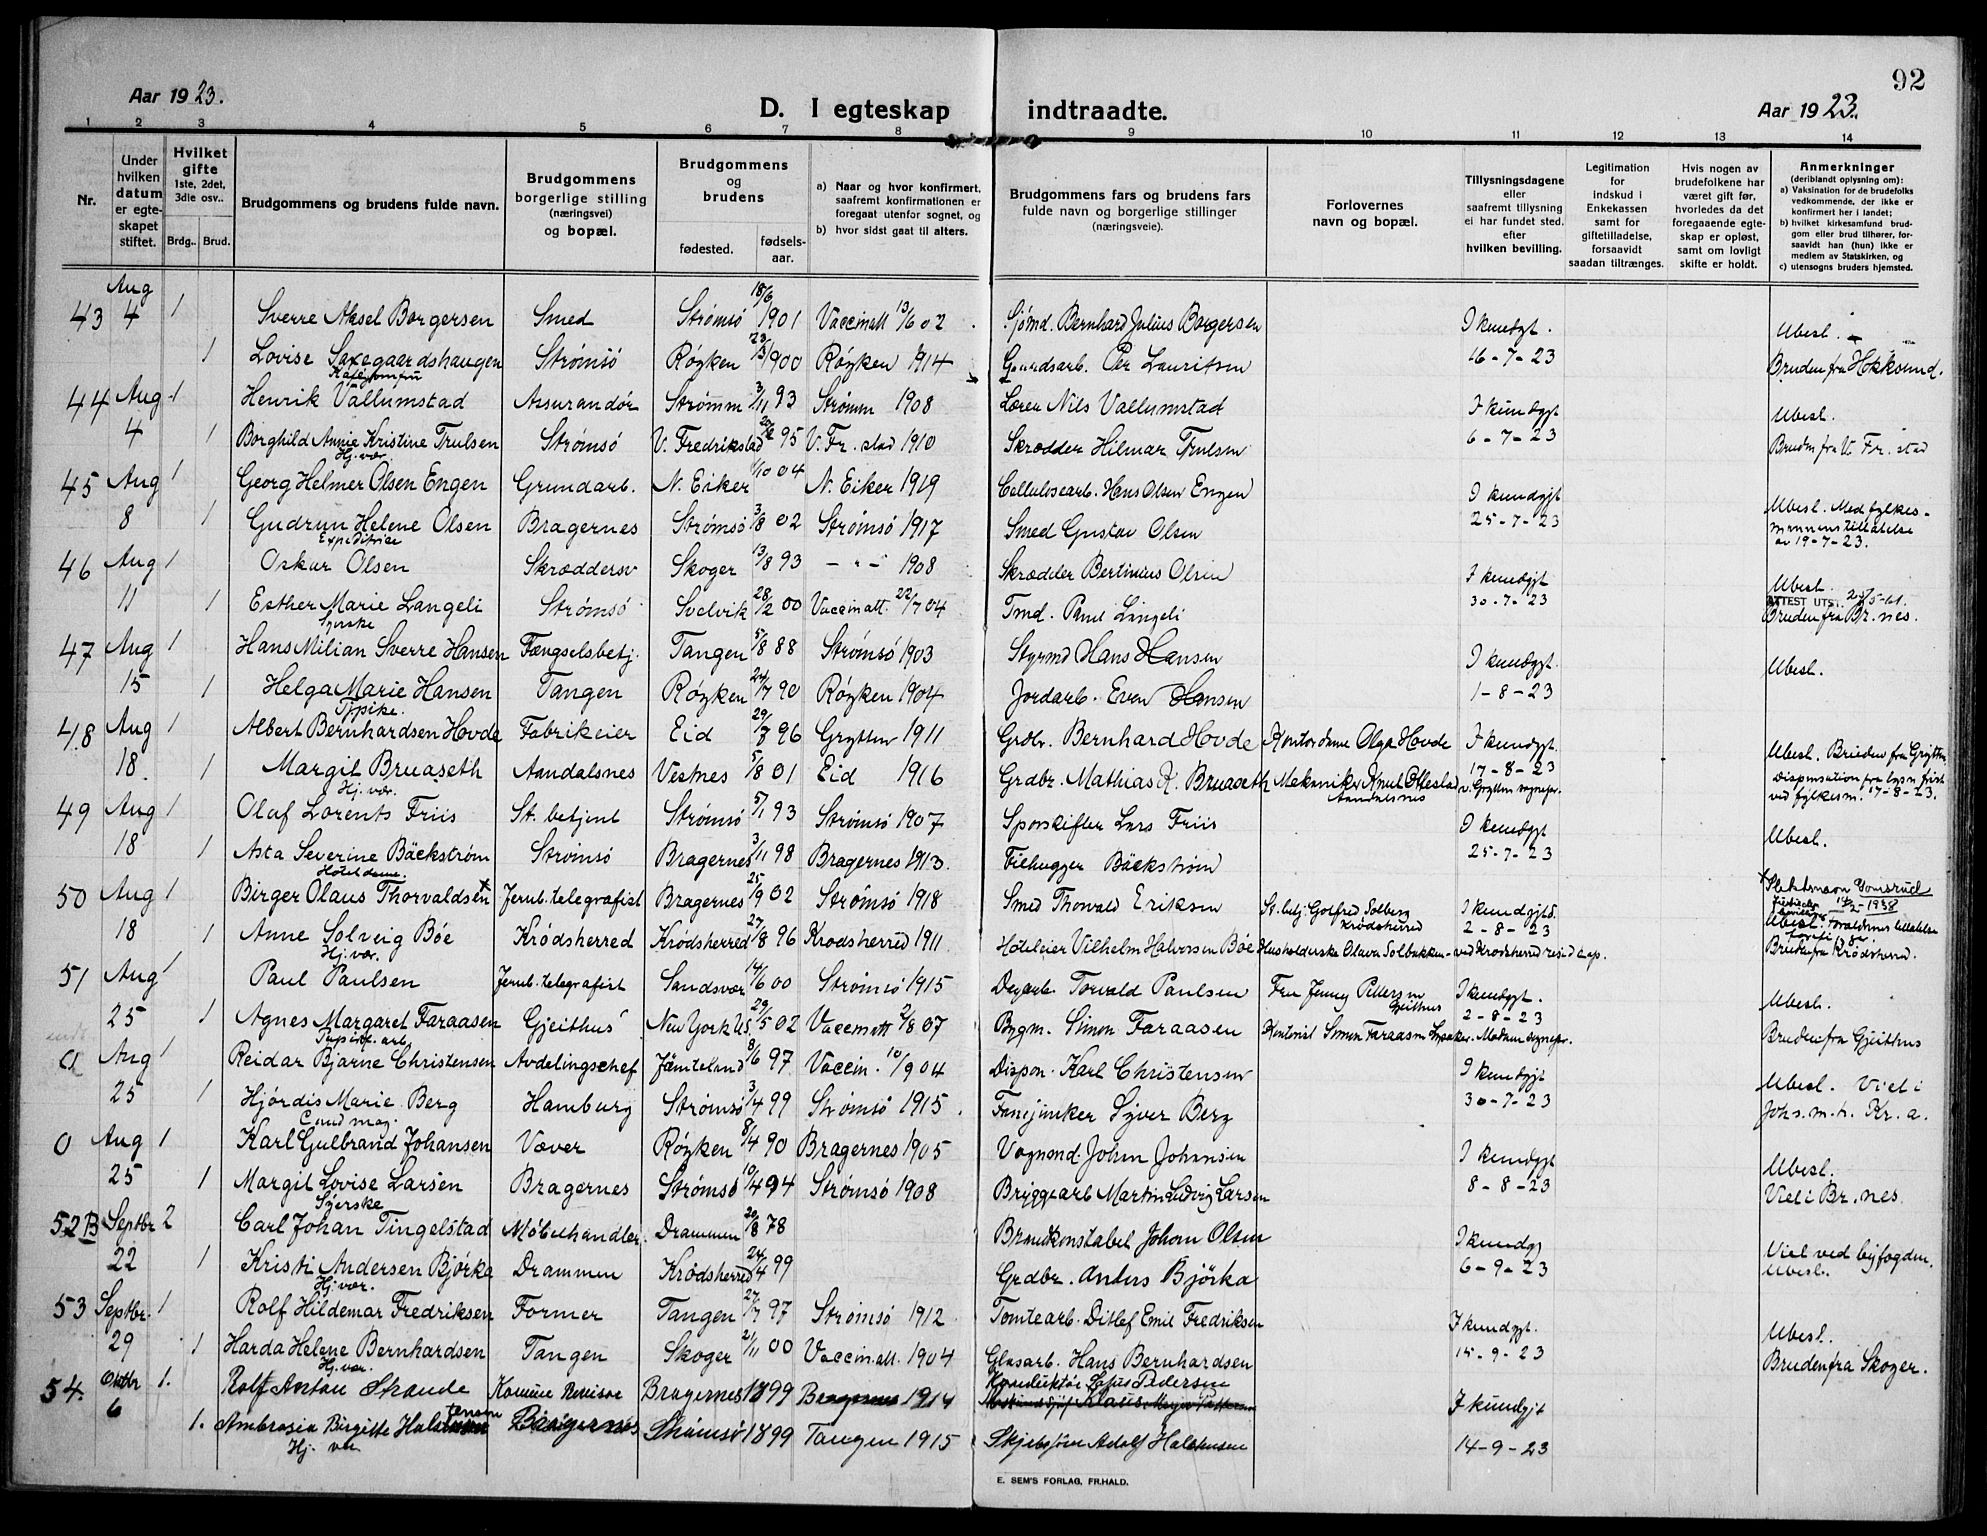 92
Aar 1923.
D. I egteskap indtraadte.
Aar 1923.
1 2 3 4 5 6 7 8 9 10 11 12 13 14
Nr.
Under hvilken datum er egteskapet stiftet.
Hvilket gifte 1ste, 2det, 3die osv..
Brdg.. Brud.
Brudgommens og brudens fulde navn.
Brudgommens borgerlige stilling (næringsvei) og bopæl.
Brudgommens og brudens
fødested. fødselsaar.
a) Naar og hvor konfirmert, saafremt konfirmationen er foregaat utenfor sognet, og
b) hvor sidst gaat til alters.
Brudgommens fars og brudens fars fulde navn og borgerlige stillinger (næringsveie).
Forlovernes navn og bopæl.
Tillysningsdagene eller saafremt tillysning ei har fundet sted. efter hvilken bevilling.
Legitimation for indskud i Enkekassen samt for giftetilladelse, forsaavidt saadan tiltrænges.
Hvis nogen av brudefolkene har været gift før, hvorledes da det foregaaende egteskap er opløst, samt om lovligt skifte er holdt.
Anmerkninger (deriblandt oplysning om):
a) Vaksination for de brudefolks vedkommende, der ikke er konfirmert her i landet;
b) hvilket kirkesamfund brudgom eller brud tilhører, forsaavidt han (hun) ikke er medlem av Statskirken, og
c) utensogns bruders hjemsted.
43 Aug 4 1 Sverre Aksel Borgersen Smed Strømsø 18/6 1901 Vaccinatt 13/6 02 Sjømd. Bernhard Julius Borgersen I kundgjt. Ubesl.
1 Lovise Saxegaardshaugen Strømsø Røyken 23/3 1900 Røyken 1914 Gaardsarb. Per Lauritsen 16-7-23 Bruden fra Hokksund.
44 Aug 1 Henrik Vallumstad Assurandør Strømm 3/11 93 Strømm 1908 Lærer Nils Vallumstad I kundgjt Ubesl.
4 1 Borghild Annie Kristine Trulsen Strømsø V. Fredrikstad 20/2 95 V. Fr.stad 1910 Skrædder Hilmar Trulsen 6-7-23 Bruden fra V. Fr.stad
Hj. vær.
45 Aug 1 Georg Helmer Olsen Engen Grundarb. N. Eiker 1/10 04 N. Eiker 1919 Cellulosearb. Hans Olsen Engen I kundgjt Ubesl. Med fylkesmannens tillatelse av 19-7-23.
8 1 Gudrun Helene Olsen Bragernes Strømsø 3/8 02 Strømsø 1917 Smed Gustav Olsen 25-7-23
Expeditrice
46 Aug 1 Oskar Olsen Skræddersv Skoger 13/8 93 - " - 1908 Skrædder Bertinius Olsen I kundgjt Ubesl.
11 1 Esther Marie Langeli Strømsø Svelvik 28/2 00 Vaccinatt. 22/7 04 Tmd. Paul Langeli 30-7-23 ATTEST UTST. 25/5-61. Bruden fra Br.nes.
Syerske
47 Aug 1 Hans Milian Sverre Hansen Fængselsbetj. Tangen 5/8 88 Strømsø 1903 Styrmd Hans Hansen I kundgjt. Ubesl.
15 1 Helga Marie Hansen Tangen Røyken 24/7 90 Røyken 1904 Jordarb. Even Hansen 1-8-23
48 Aug 1 Albert Bernhardsen Hovde Fabrikeier Eid 29/8 96 Grytten 1911 Grdbr. Bernhard Hovde Kontordame Olga Hovde I kundgjt. Ubesl. Bruden fra Grytten
18 1 Margit Bruaseth Aandalsnes Vestnes 5/8 01 Eid 1916 Grdbr. Mathias K. Bruaseth Mekaniker Knut Ottestad Aandalsnes 17-8-23 v. Grytten sognepr. Dispensation fra lysn. frist ved fylkesm. 17-8-23.
Hj. vær.
49 Aug 1 Olaf Lorents Friis St. betjent Strømsø 5/1 93 Strømsø 1907 Sporskifter Lars Friis I kundgjt Ubesl.
18 1 Asta Severine Bäckstrøm Strømsø Bragernes 3/11 98 Bragernes 1913. Filhugger Bäckstrøm 25-7-23
Hoteldame.
50 Aug 1 Birger Olaus Thorvaldsen Jernb. telegrafist Bragernes 25/9 02 Strømsø 1918 Smed Thorvald Eriksen St. betj. Gotfred Solberg Krødsherred I kundgjt. Slektsnavn Gomsrud 1938
18 1 Anne Solveig Bøe Krødsherred Krødsherred 27/8 96 Krødsherred 1911 Hoteleier Vilhelm Halvorsen Bøe Husholderske Olava Solbakken 2-8-23 ved Krødsherred resid. kap. Ubesl. Bruden fra Krødsherred.
Hj. vær.
51 Aug 1 Paul Paulsen Jernb. telegrafist Sandsvær 14/6 00 Strømsø 1915 Dagarb. Torvald Paulsen Fru Jenny Pettersen Gjeithus I kundgjt. Ubesl.
25 1 Agnes Margaret Faraasen Gjeithus New York U.S. 29/5 02 Vaccinatt 2/8 07 Bygm. Simon Faraasen 2-8-23 Modum sognepr. Bruden fra Gjeithus
a Aug 1 Reidar Bjarne Christensen Avdelingschef Jämteland 8/6 97 Vaccin. 10/9 04 Dispon. Karl Christensen I kundgjt Ubesl. Viet i
25 1 Hjørdis Marie Berg Hamburg Strømsø 3/4 99 Strømsø 1915. Fanejunker Syver Berg 30-7-23 Johs. m. h. Kr.a.
Cand mag.
0 Aug 1 Karl Gulbrand Johansen Væver Røyken 8/4 90 Bragernes 1905 Vognmd. Johan Johansen I kundgjt Ubesl.
25 1 Margit Lovise Larsen Bragernes Strømsø 10/4 94 Strømsø 1908 Bryggearb Martin Ludvig Larsen 8-8-23 Viet i Br.nes.
Syerske
52B Septbr 2 Carl Johan Tingelstad Møbelhandler. Drammen 20/8 78 Brandkonstabel Johan Olsen I kundgj Viet ved byfogden.
22 1 Kristi Andersen Bjørka Drammen Krødsherred 24/4 99 Grdbr. Anders Bjørka 6-9-23 Ubesl.
Hj. vær.
53 Septbr. 1 Rolf Hildemar Fredriksen Former Tangen 27/7 97 Strømsø 1912 Tomtearb. Ditlef Emil Fredriksen I kundgjt. Ubesl.
29 1 Harda Helene Bernhardsen Tangen Skoger 21/11 00 Vaccinatt. 1904 Glasarb. Hans Bernhardsen 15-9-23 Bruden fra Skoger.
Hj. vær.
54. Oktbr 1. Rolf Anton Strande Komune Revisor Bragernes 1899 Bragernes 1914 Konduktør Pedersen I kundgjt
6 1. Ambrosia Birgitte Bragernes Strømsø 1899 Tangen 1915 Skibsfører Adolf Halvorsen 14-9-23
Hj. vær
E. SEM'S FORLAG, FR.HALD.